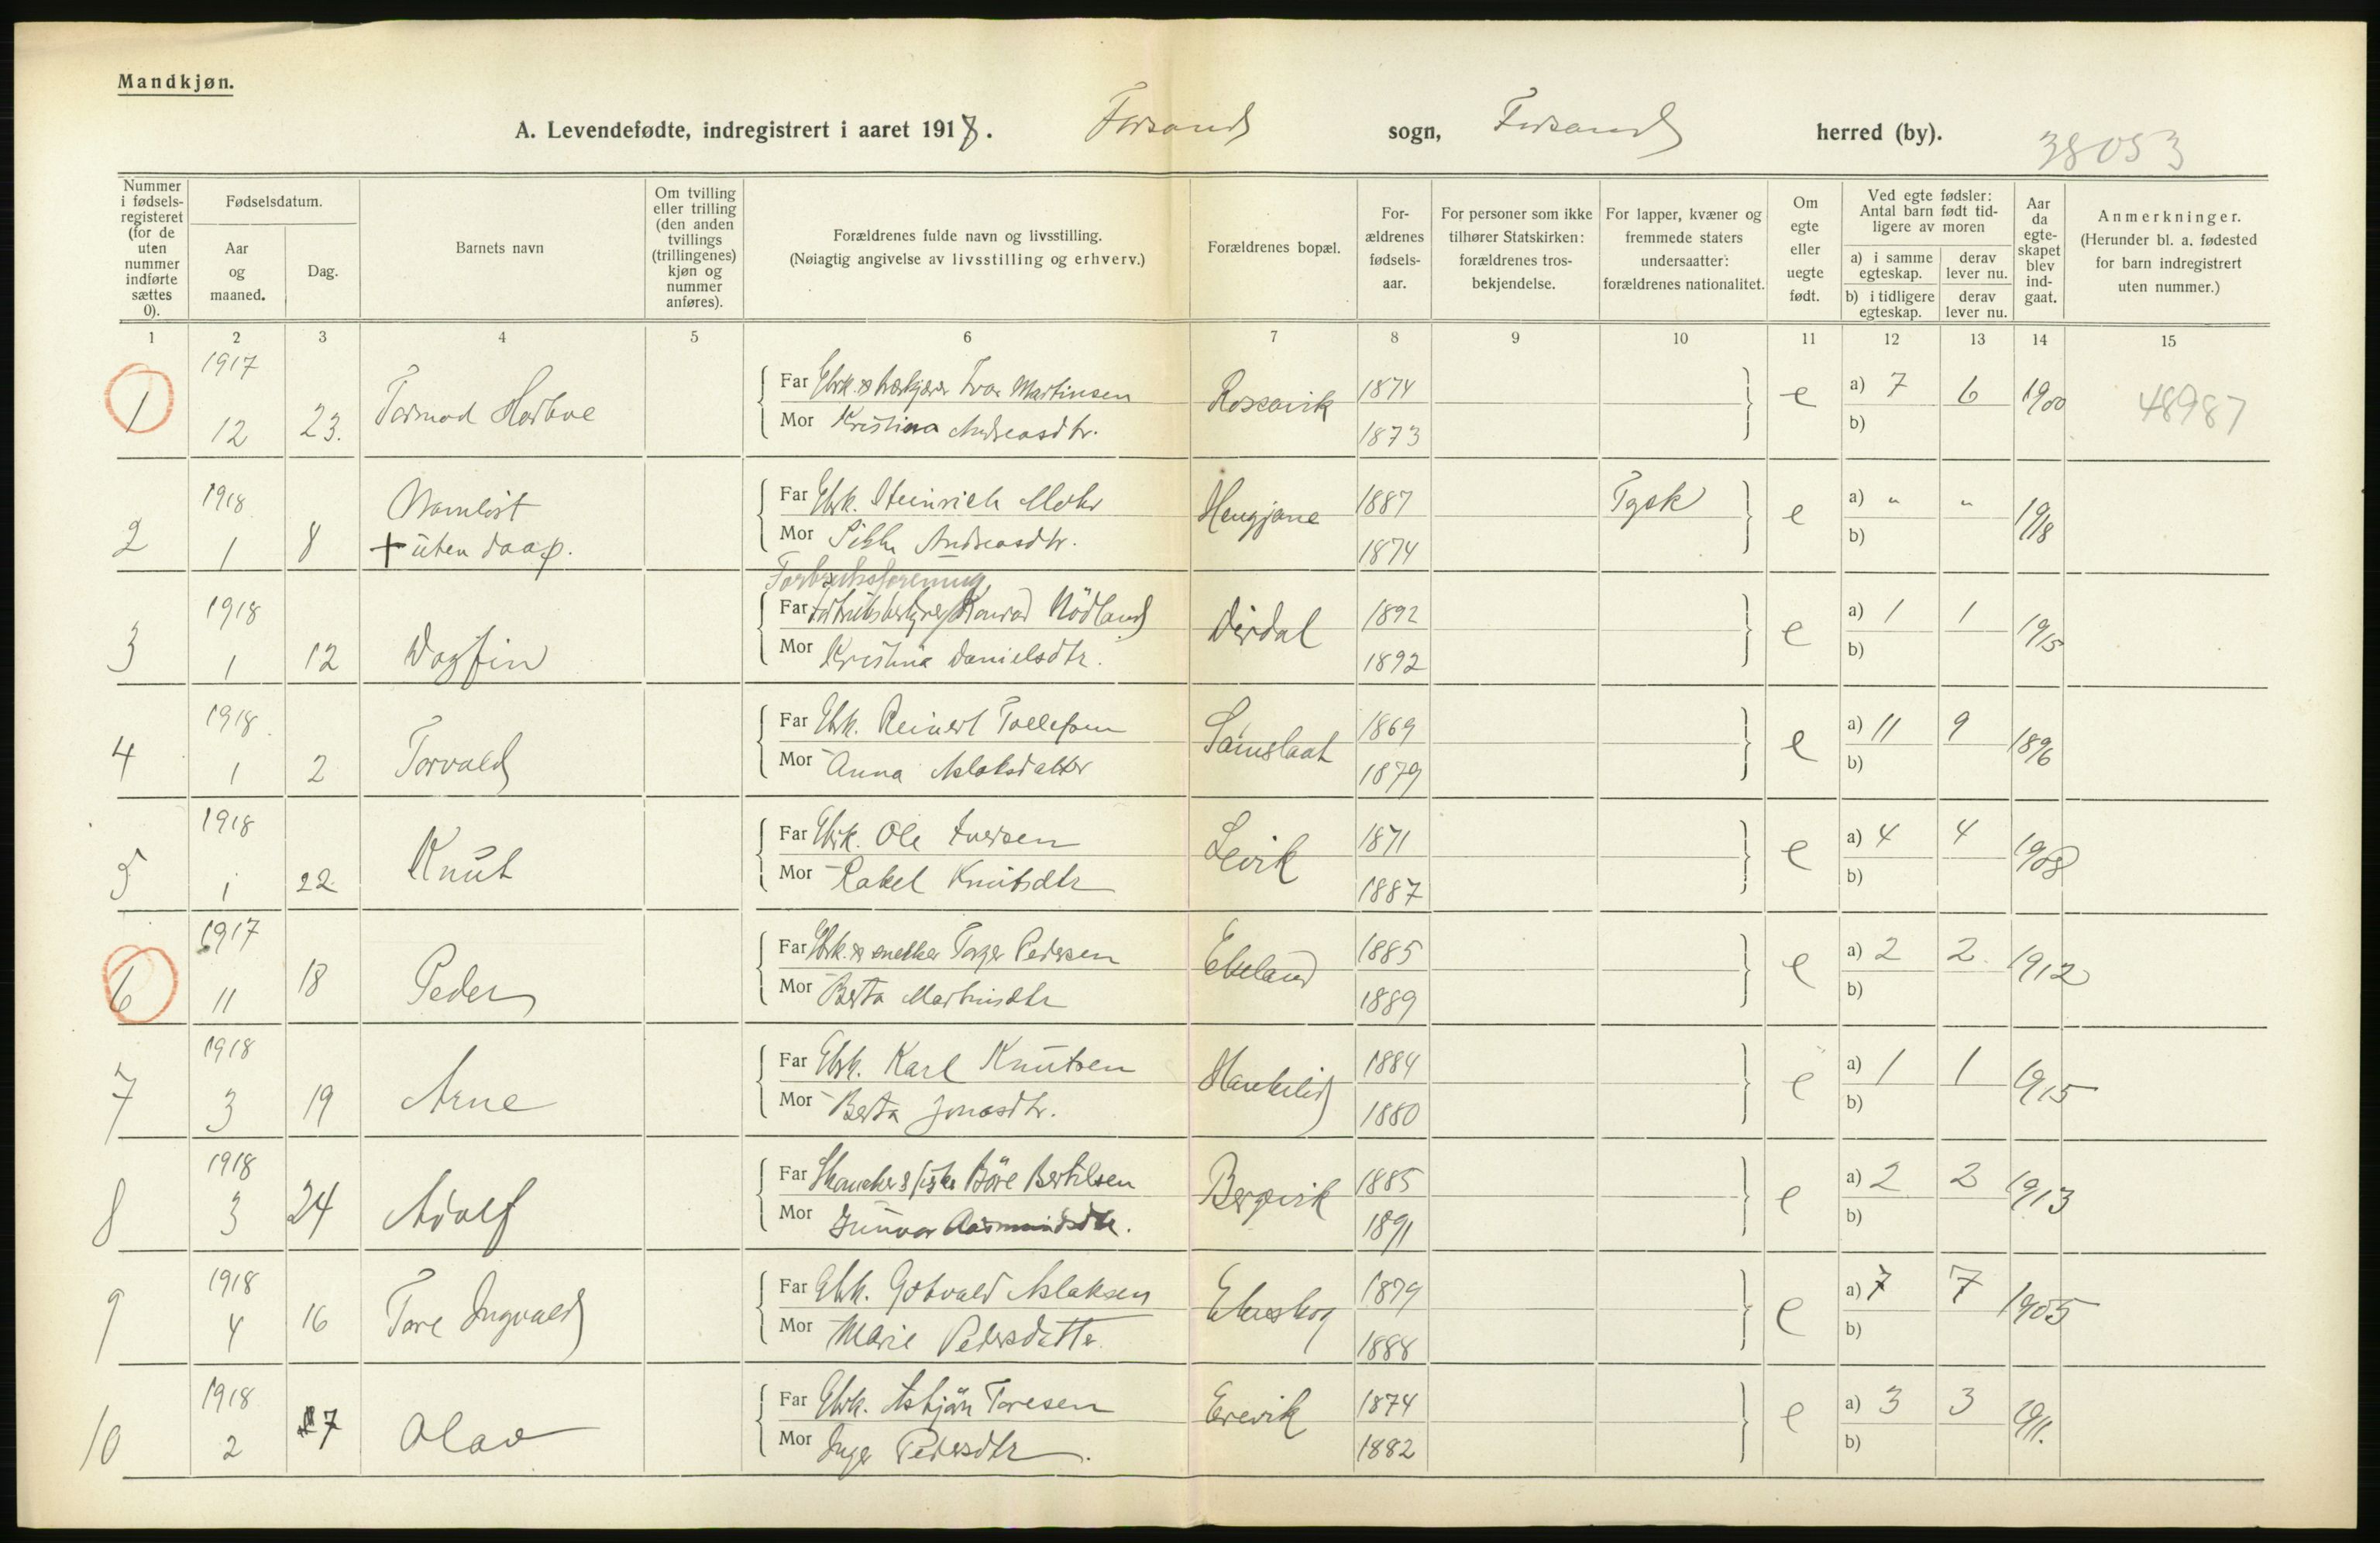 Mandkjøn.
A. Levendefødte, indregistrert i aaret 1918. Forsand sogn, Forsand herred (by).
38053
Nummer i fødsels-registeret (for de uten nummer indførte sættes 0).
Fødselsdatum.
Aar og maaned.
Dag.
Barnets navn
Om tvilling eller trilling (den anden tvillings (trillingenes) kjøn og nummer anføres).
Forældrenes fulde navn og livsstilling.
(Nøiagtig angivelse av livsstilling og erhverv.)
Forældrenes bopæl.
For-ældrenes fødsels-aar.
For personer som ikke tilhører Statskirken: forældrenes tros-bekjendelse.
For lapper, kvæner og fremmede staters undersaatter: forældrenes nationalitet.
Om egte eller uegte født.
Ved egte fødsler: Antal barn født tid-ligere av moren
a) i samme egteskap.
derav lever nu.
b) i tidligere egteskap.
derav lever nu.
Aar da egte-skapet blev ind-gaat.
Anmerkninger.
(Herunder bl. a. fødested for barn indregistrert uten nummer.)
1 2 3 4 5 6 7 8 9 10 11 12 13 14 15
1 1917 12 23. Tormod Far Gbrk. Ivar Martinsen 1874 e a) 7 6 1900 48987
Mor Kristina Andreasdtr. 1873 b)
2 1918 1 8 Navnløst Far Gbrk. Heinrich Mohr Hengjane 1887 Tysk e a) " " 1918
+ uten daap. Mor Andreasdtr. 1874 b)
Forbruksforening
3 1918 1 12 Dagfin Far Konrad Nödland Dirdal 1892 e a) 1 1 1915
Mor Kristina Danielsdtr. 1892 b)
4 1918 1 2 Torvald Far Gbrk. Reinert Tollefsen Sømslaat 1869 e a) 11 9 1896
Mor Anna Aslaksdatter 1879 b)
5 1918 1 22. Knut Far Gbrk. Ole Iversen Levik 1871 e a) 4 4 1908
Mor Rakel Knutsdtr 1887 b)
6 1917 11 18 Peder Far Gbrk. & snekker Torger Pedersen Eikeland 1885 e a) 2 2 1912
Mor Berta Martinsdtr 1889 b)
7 1918 3 19 Arne Far Gbrk. Karl Knutsen Haukelid 1884 e a) 1 1 1915
Mor Berta Jonasdtr. 1880 b)
8 1918 3 24 Adolf Far & fisker Böre Bertilsen Bergevik 1885 e a) 2 2 1913
Mor Gunvor Aasmundsdtr. 1891 b)
9 1918 4 16 Tore Ingvald Far Gbrk. Gotvald Aslaksen Eikeskog 1879 e a) 7 7 1905
Mor Marie Pedersdatter 1888 b)
10 1918 2 7 Olav Far Gbrk. Asbjön Toresen Erevik 1874 e a) 3 3 1911.
Mor Inger Pedersdtr. 1882 b)